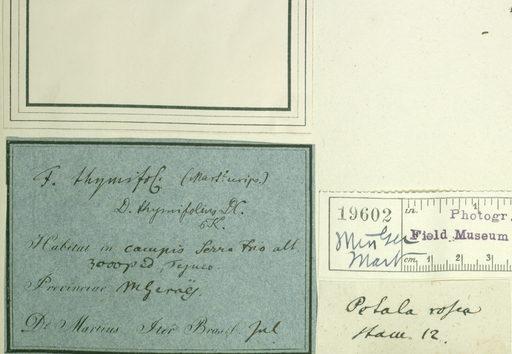 F. thymifol. (Mart. scrips.)
D. thymifolius DC.
Habitat in campis Serra frio alt.
3000 ped, Tejuco
Provinciae M Geraës
De Martius Iter Brasil Jul
19602
in. 1
Photogr.
Field Museum
Min Ger
Mart
cm. 1 2 3
Petala rosea
Stam 12.